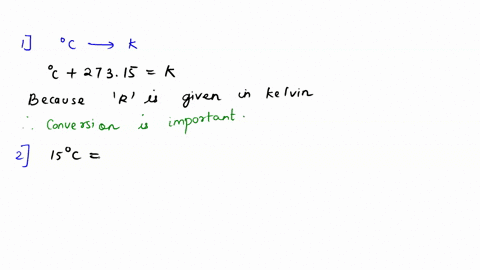 1] °C → K
°C + 273.15 = K
Because 'R' is given in kelvin
∴ Conversion is important.
2] 15°C =